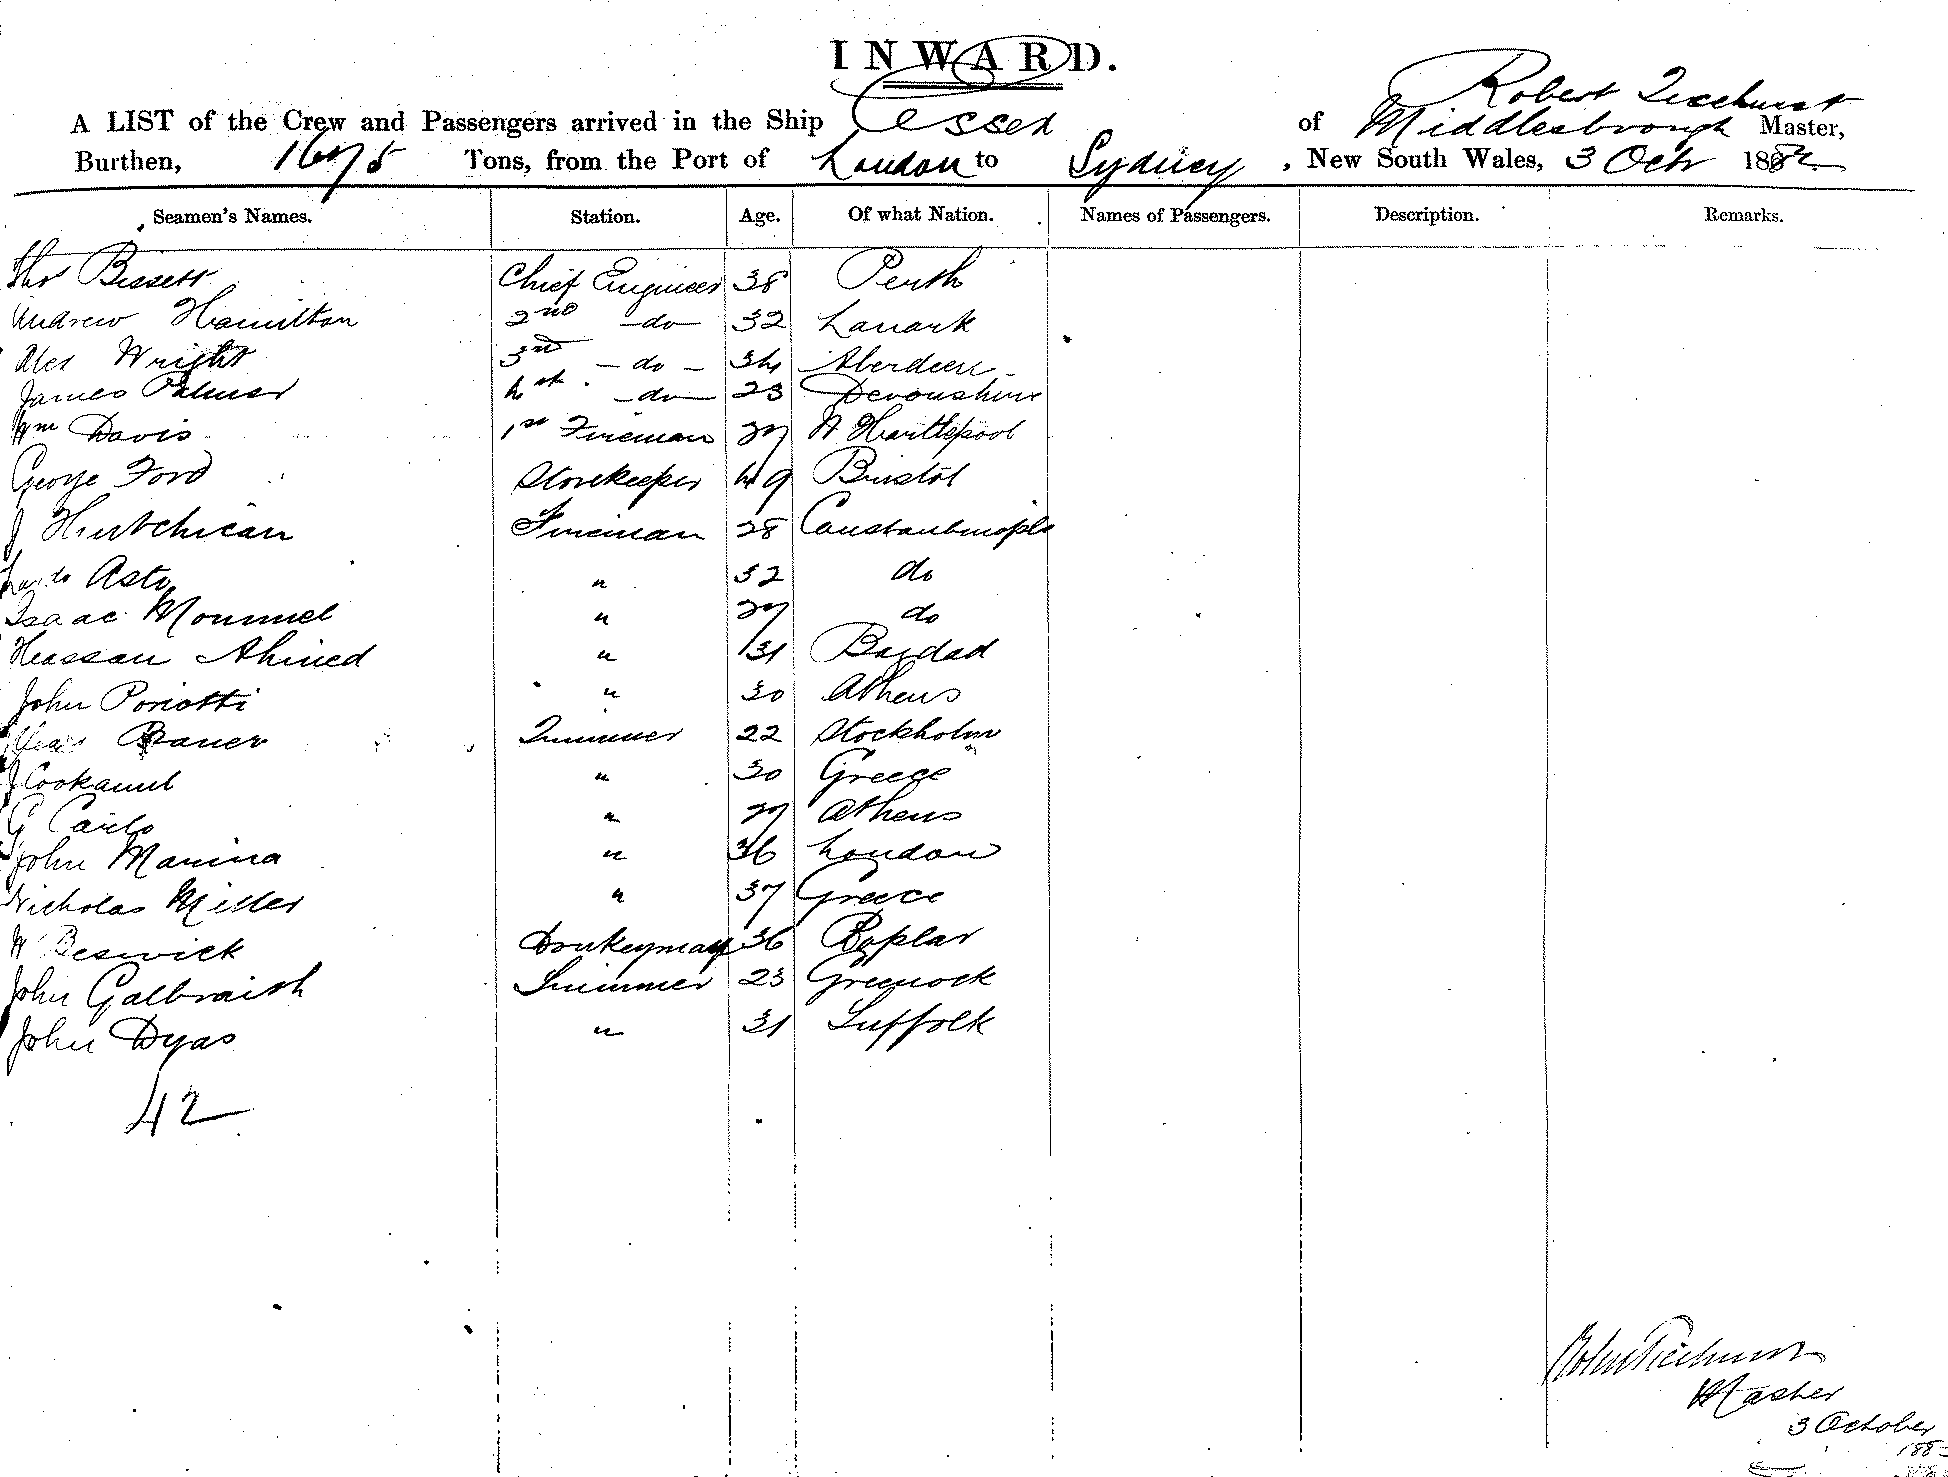 INWARD.
Robert Ticehurst
A LIST of the Crew and Passengers arrived in the Ship Essex of Middlesbrough Master,
Burthen, 1675 Tons, from the Port of London to Sydney, New South Wales, 3 Octr 1882
Seamen's Names. Station. Age. Of what Nation. Names of Passengers. Description. Remarks.
Thos Bissett Chief Engineer 38 Perth
Andrew Hamilton 2nd -do- 32 Lanark
Alex Wright 3rd -do- 34 Aberdeen
James Palmer 4th -do- 23 Devonshire
Wm Davis 1st Fireman 27 W Hartlepool
George Ford Storekeeper 49 Bristol
J Hutchican Fireman 28 Constantinople
Asty " 32 do
Isaac Mommel " 27 do
Hassan Ahmed " 31 Bagdad
John Poriotti " 30 Athens
Bauer Trimmer 22 Stockholm
J Cookamil " 30 Greece
G Carlo " 27 Athens
John Manina " 36 London
Nicholas Miller " 37 Greece
W Beswick Donkeyman 36 Poplar
John Galbraith Trimmer 23 Greenock
John Dyas " 31 Suffolk
42
Robert Ticehurst
Master
3 October